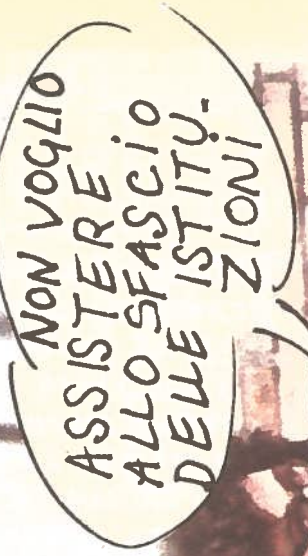 NON VOGLIO
ASSISTERE
ALLO SFASCiO
DELLE ISTITU-
ZIONI